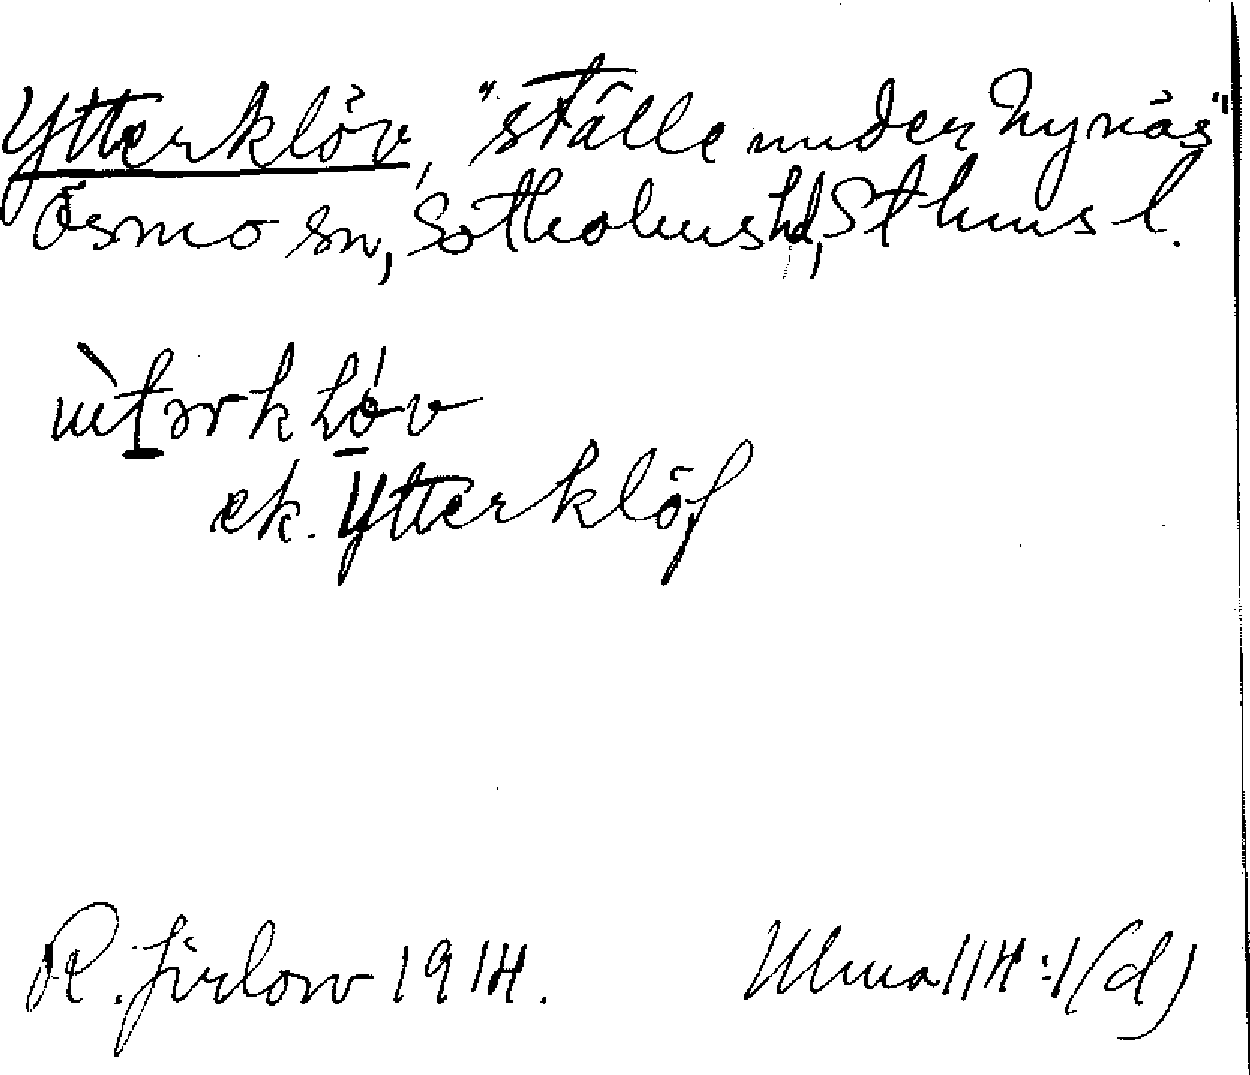 Ytterklöv, "ställe under Nynäs"
Ösmo sn, Sotholms hd, Sthms l.
ek. Ytterklöf
R. Jirlow 1914. Ulma 114:1(d)